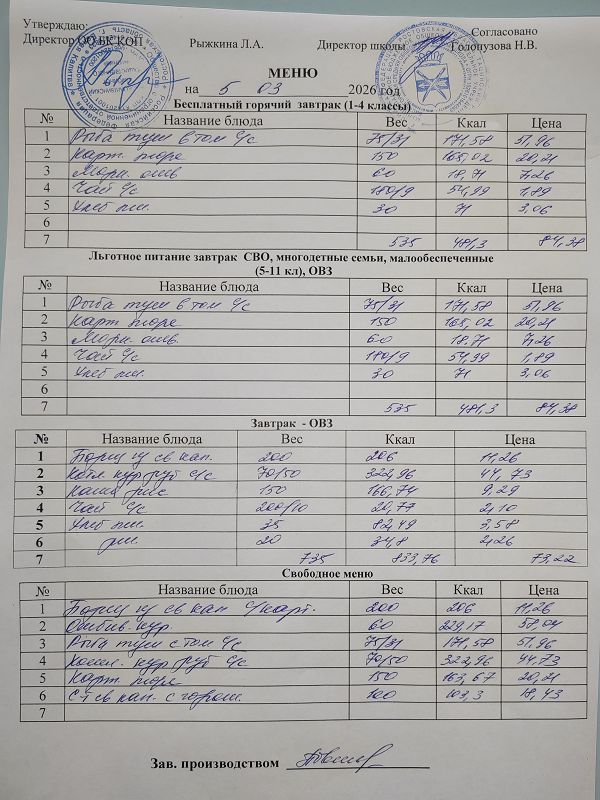 Утверждаю:
Согласовано
Директор ОО БК КОП Рыжкина Л.А. Директор школы Голопузова Н.В.
МЕНЮ
на 5 03 2026 год
Бесплатный горячий завтрак (1-4 классы)
№ Название блюда Вес Ккал Цена
1 Рыба туш в том с/с 75/31 171,58 51,96
2 Карт. пюре 150 165,02 20,21
3 60 18,71 7,26
4 Чай с/с 180/9 54,99 1,89
5 Хлеб пш. 30 71 3,06
6
7 535 481,3 84,38
Льготное питание завтрак СВО, многодетные семьи, малообеспеченные
(5-11 кл), ОВЗ
№ Название блюда Вес Ккал Цена
1 Рыба туш в том с/с 75/31 171,58 51,96
2 Карт пюре 150 165,02 20,21
3 60 18.71 7,26
4 Чай с/с 180/9 54,99 1,89
5 Хлеб пш. 30 71 3,06
6
7 535 481,3 84,38
Завтрак - ОВЗ
№ Название блюда Вес Ккал Цена
1 Борщ из св кап. 200 206 11,26
2 Котл. кур руб с/с 70/50 322,96 44,73
3 Каша рис 150 166,74 9,29
4 Чай с/с 200/10 20,77 2,10
5 Хлеб пш. 35 82,49 3,58
6 рж. 20 34,8 2,26
7 735 833,76 73,22
Свободное меню
№ Название блюда Вес Ккал Цена
1 Борщ из св кап с/карт. 200 206 11,26
2 Отбив. кур. 60 229,17 58,04
3 Рыба туш с том с/с 75/31 171,58 51,96
4 Котл. кур руб с/с 70/50 322,96 44,73
5 Карт пюре 150 163,67 20,21
6 Ст св кап. с горош. 100 103,3 18,43
7
Зав. производством